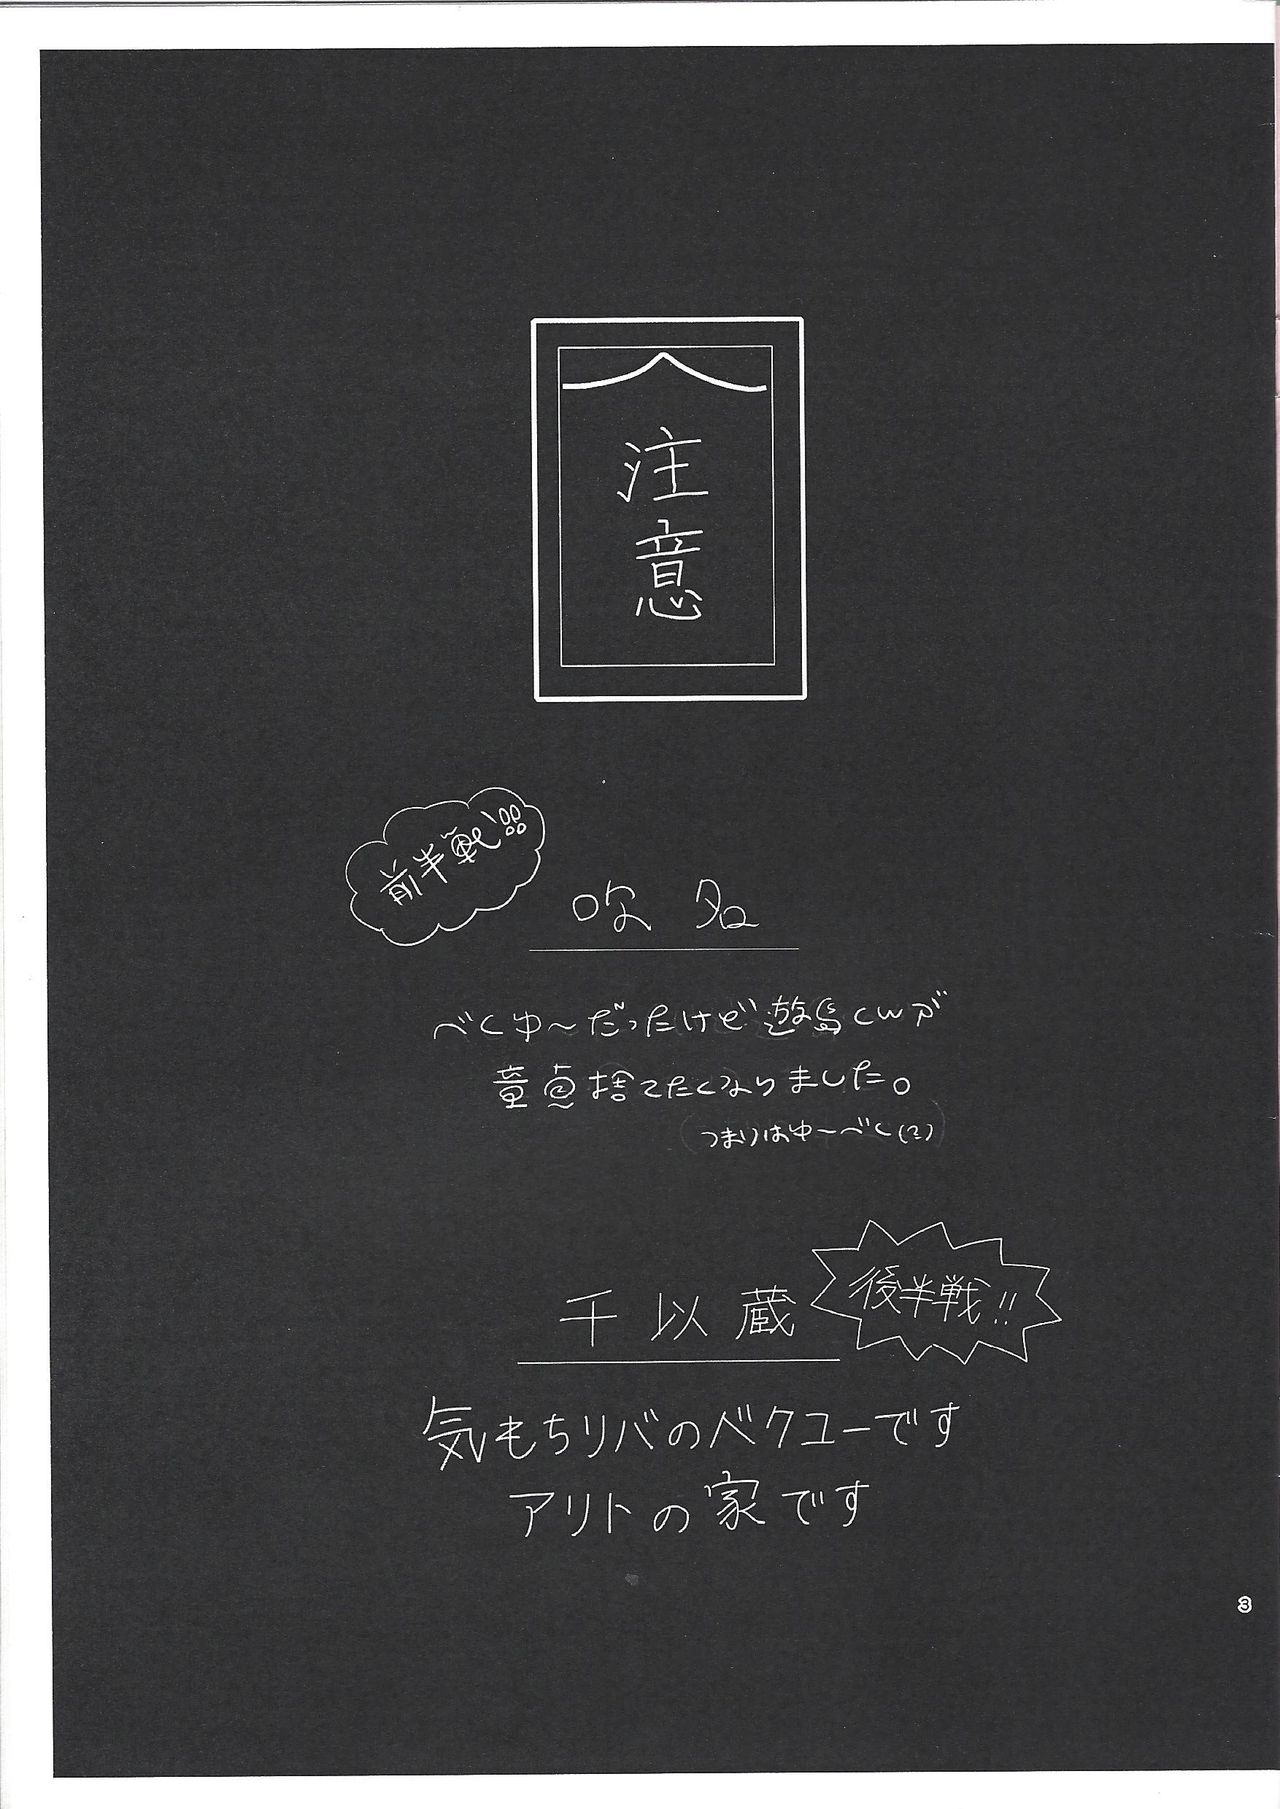 注意
前半戦!!
吹名
べくゆ〜だったけど遊馬くんが
童貞捨てたくなりました。
(つまりはゆ〜べく(?))
千以蔵
後半戦!!
気もちリバのベクユーです
アリトの家です
3